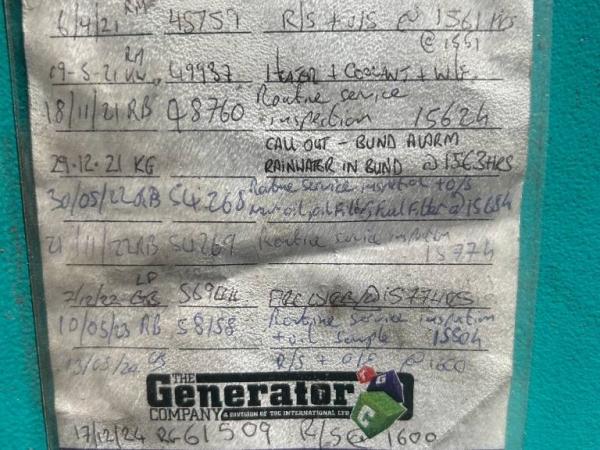 6/4/21 45759 R/S + O/S @ 1561 HRS
@ 1551
RA
09-5-21 49937 HEATER + COOLANT + W/F.
18/11/21 RB Q8760 Routine service
inspection 1562h
CALL OUT - BUND ALARM
29.12.21 KG RAINWATER IN BUND @ 1563HRS
30/05/22 RB S4268 Routine service inspection + o/s
oil, oil Filters, Fuel Filter @ 1568h
21/11/22 RB S4269 Routine service inspection
1577h
LP
7/12/22 @ 1577HRS
10/05/23 RB S8158 Routine service inspection
+ oil sample 1580h
13/05/24 R/S + O/S @ 1600
THE
Generator
COMPANY A DIVISION OF TGC INTERNATIONAL LTD
TGC
17/12/24 RG 61509 R/S @ 1600